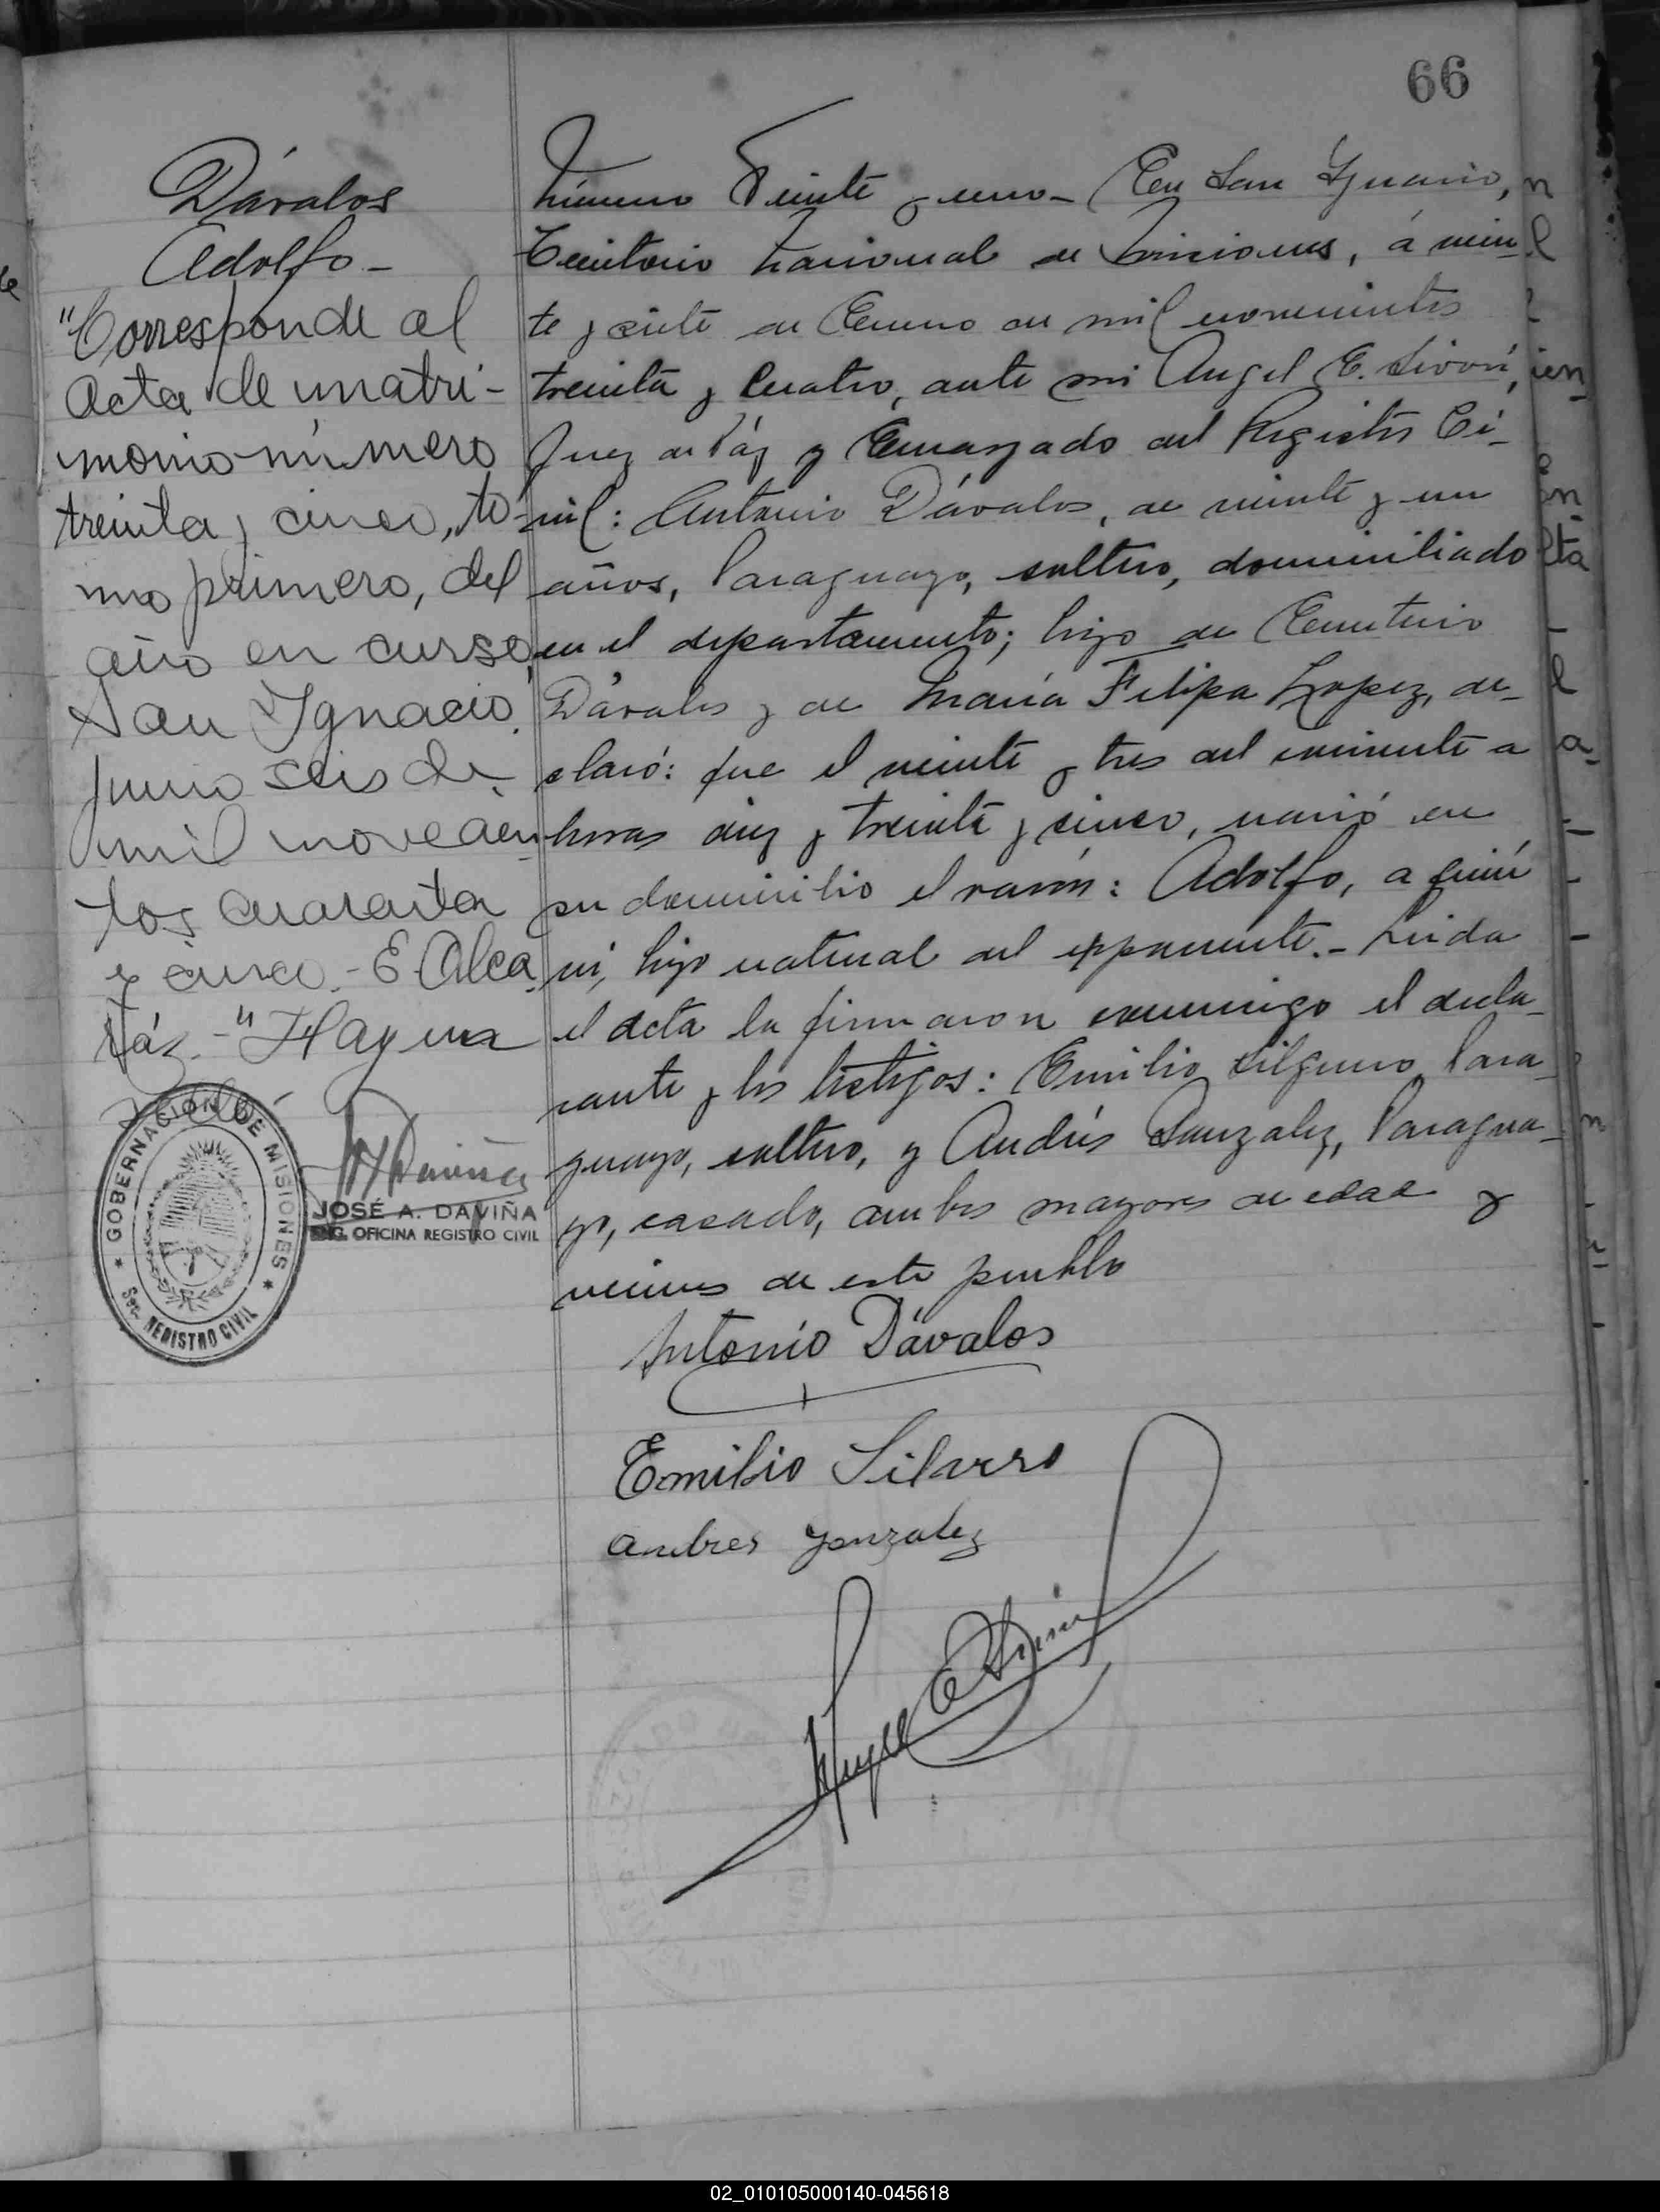 66
Dávalos
Adolfo-
"Corresponde al
Acta de matri-
monio número
treinta y cinco, to-
mo primero, del
año en curso,
San Ignacio,
Junio seis de
mil novecien-
tos cuarenta
y cinco.- E. Alca
ráz.-" Hay un
sello
GOBERNACION DE MISIONES
Sec. REGISTRO CIVIL
JOSÉ A. DAVIÑA
ENC. OFICINA REGISTRO CIVIL
Número Veinte y uno- En San Ygnacio,
Territorio Nacional de Misiones, á vein-
te y siete de Enero de mil novecientos
treinta y cuatro, ante mi Angel E. Sivori,
Juez de Páz y Encargado del Registro Ci-
vil: Antonio Dávalos, de veinte y un
años, Paraguayo, soltero, domiciliado
en el departamento; hijo de Emeterio
Dávalos y de María Felipa Lopez, de-
claró: que el veinte y tres del corriente a
horas diez y treinta y cinco, nació en
su domicilio el varón: Adolfo, a quién
ví, hijo natural del exponente.- Leida
el acta la firmaron conmigo el decla-
rante y los testigos: Emilio Silguero Para-
guayo, soltero, y Andrés Gonzalez, Paragua-
yo, casado, ambos mayores de edad y
vecinos de este pueblo
Antonio Dávalos
Emilio
Andres Gonzalez
Angel E Sivori
02_010105000140-045618